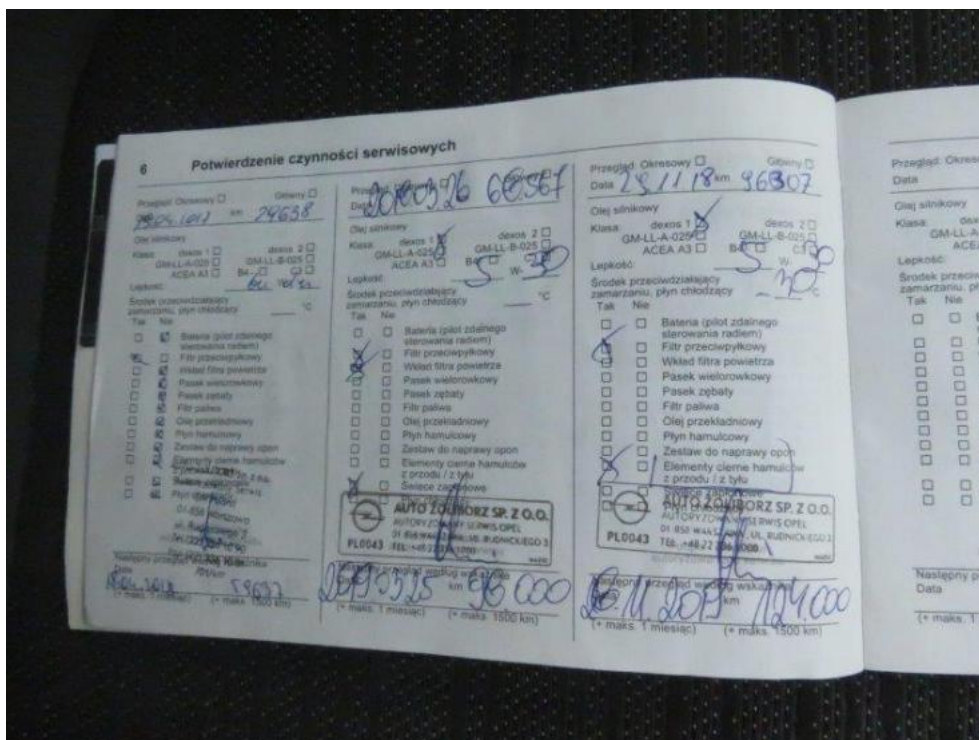 6 Potwierdzenie czynności serwisowych
Przegląd Okresowy Główny
km 29638
Olej silnikowy
Klasa: dexos 1 dexos 2
GM-LL-A-025 GM-LL-B-025
ACEA A3 B4
Lepkość:
Środek przeciwdziałający
zamarzaniu, płyn chłodzący °C
Tak Nie
Bateria (pilot zdalnego
sterowania radiem)
Filtr przeciwpyłkowy
Wkład filtra powietrza
Pasek wielorowkowy
Pasek zębaty
Filtr paliwa
Olej przekładniowy
Płyn hamulcowy
Zestaw do naprawy opon
Elementy cierne hamulców
Następny przegląd
Data
(+ maks. 1 miesiąc) (+ maks. 1500 km)
Data
Olej silnikowy
Klasa: dexos 1 dexos 2
GM-LL-A-025 GM-LL-B-025
ACEA A3 B4
Lepkość: 5 W- 30
Środek przeciwdziałający
zamarzaniu, płyn chłodzący °C
Tak Nie
Bateria (pilot zdalnego
sterowania radiem)
Filtr przeciwpyłkowy
Wkład filtra powietrza
Pasek wielorowkowy
Pasek zębaty
Filtr paliwa
Olej przekładniowy
Płyn hamulcowy
Zestaw do naprawy opon
Elementy cierne hamulców
z przodu / z tyłu
Świece zapłonowe
AUTO ŻOLIBORZ SP. Z O.O.
AUTORYZOWANY SERWIS OPEL
UL. RUDNICKIEGO 3
PL0043 TEL.
Następny przegląd według
km 96000
(+ maks. 1 miesiąc) (+ maks. 1500 km)
Przegląd Okresowy Główny
Data 29 11 18 km 96307
Olej silnikowy
Klasa: dexos 1 dexos 2
GM-LL-A-025 GM-LL-B-025
ACEA A3 B4 C3
Lepkość: 5 W- 30
Środek przeciwdziałający
zamarzaniu, płyn chłodzący °C
Tak Nie
Bateria (pilot zdalnego
sterowania radiem)
Filtr przeciwpyłkowy
Wkład filtra powietrza
Pasek wielorowkowy
Pasek zębaty
Filtr paliwa
Olej przekładniowy
Płyn hamulcowy
Zestaw do naprawy opon
Elementy cierne hamulców
z przodu / z tyłu
Świece zapłonowe
AUTO ŻOLIBORZ SP. Z O.O.
AUTORYZOWANY SERWIS OPEL
UL. RUDNICKIEGO 3
PL0043 TEL.
Następny przegląd według
11.2019 km 124.000
(+ maks. 1 miesiąc) (+ maks. 1500 km)
Przegląd Okresowy
Data
Olej silnikowy
Klasa:
GM-LL-A
ACEA
Lepkość:
Środek przeciw
zamarzaniu, pły
Tak Nie
Następny p
Data
(+ maks. 1